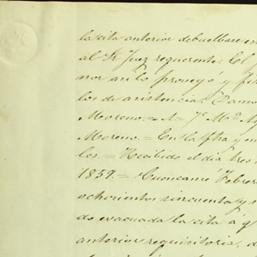 la cita anterior debuelbase en
al Sr. Juez requerente. El
nor asi lo proveyó y fir
los de asistencia. Damos
Moreno = A = Jº Mª A
Moreno = En la fha y n
les = Recibido el dia tres
1859. = Cuencamé Febrero
ochocientos cincuenta y n
do evacuada la cita á q
anterior requisitoria, d